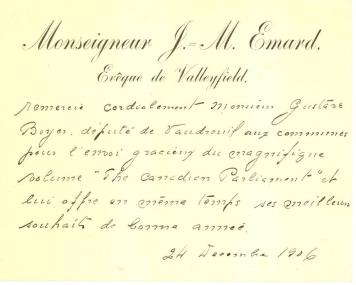 Monseigneur J.-M. Emard,
Evêque de Valleyfield,
remercie cordialement Monsieur Gustave
Boyer, député de Vaudreuil aux communes
pour l'envoi gracieux du magnifique
volume "The Canadian Parliament" et
lui offre en même temps ses meilleurs
souhaits de bonne année.
24 Decembre 1906